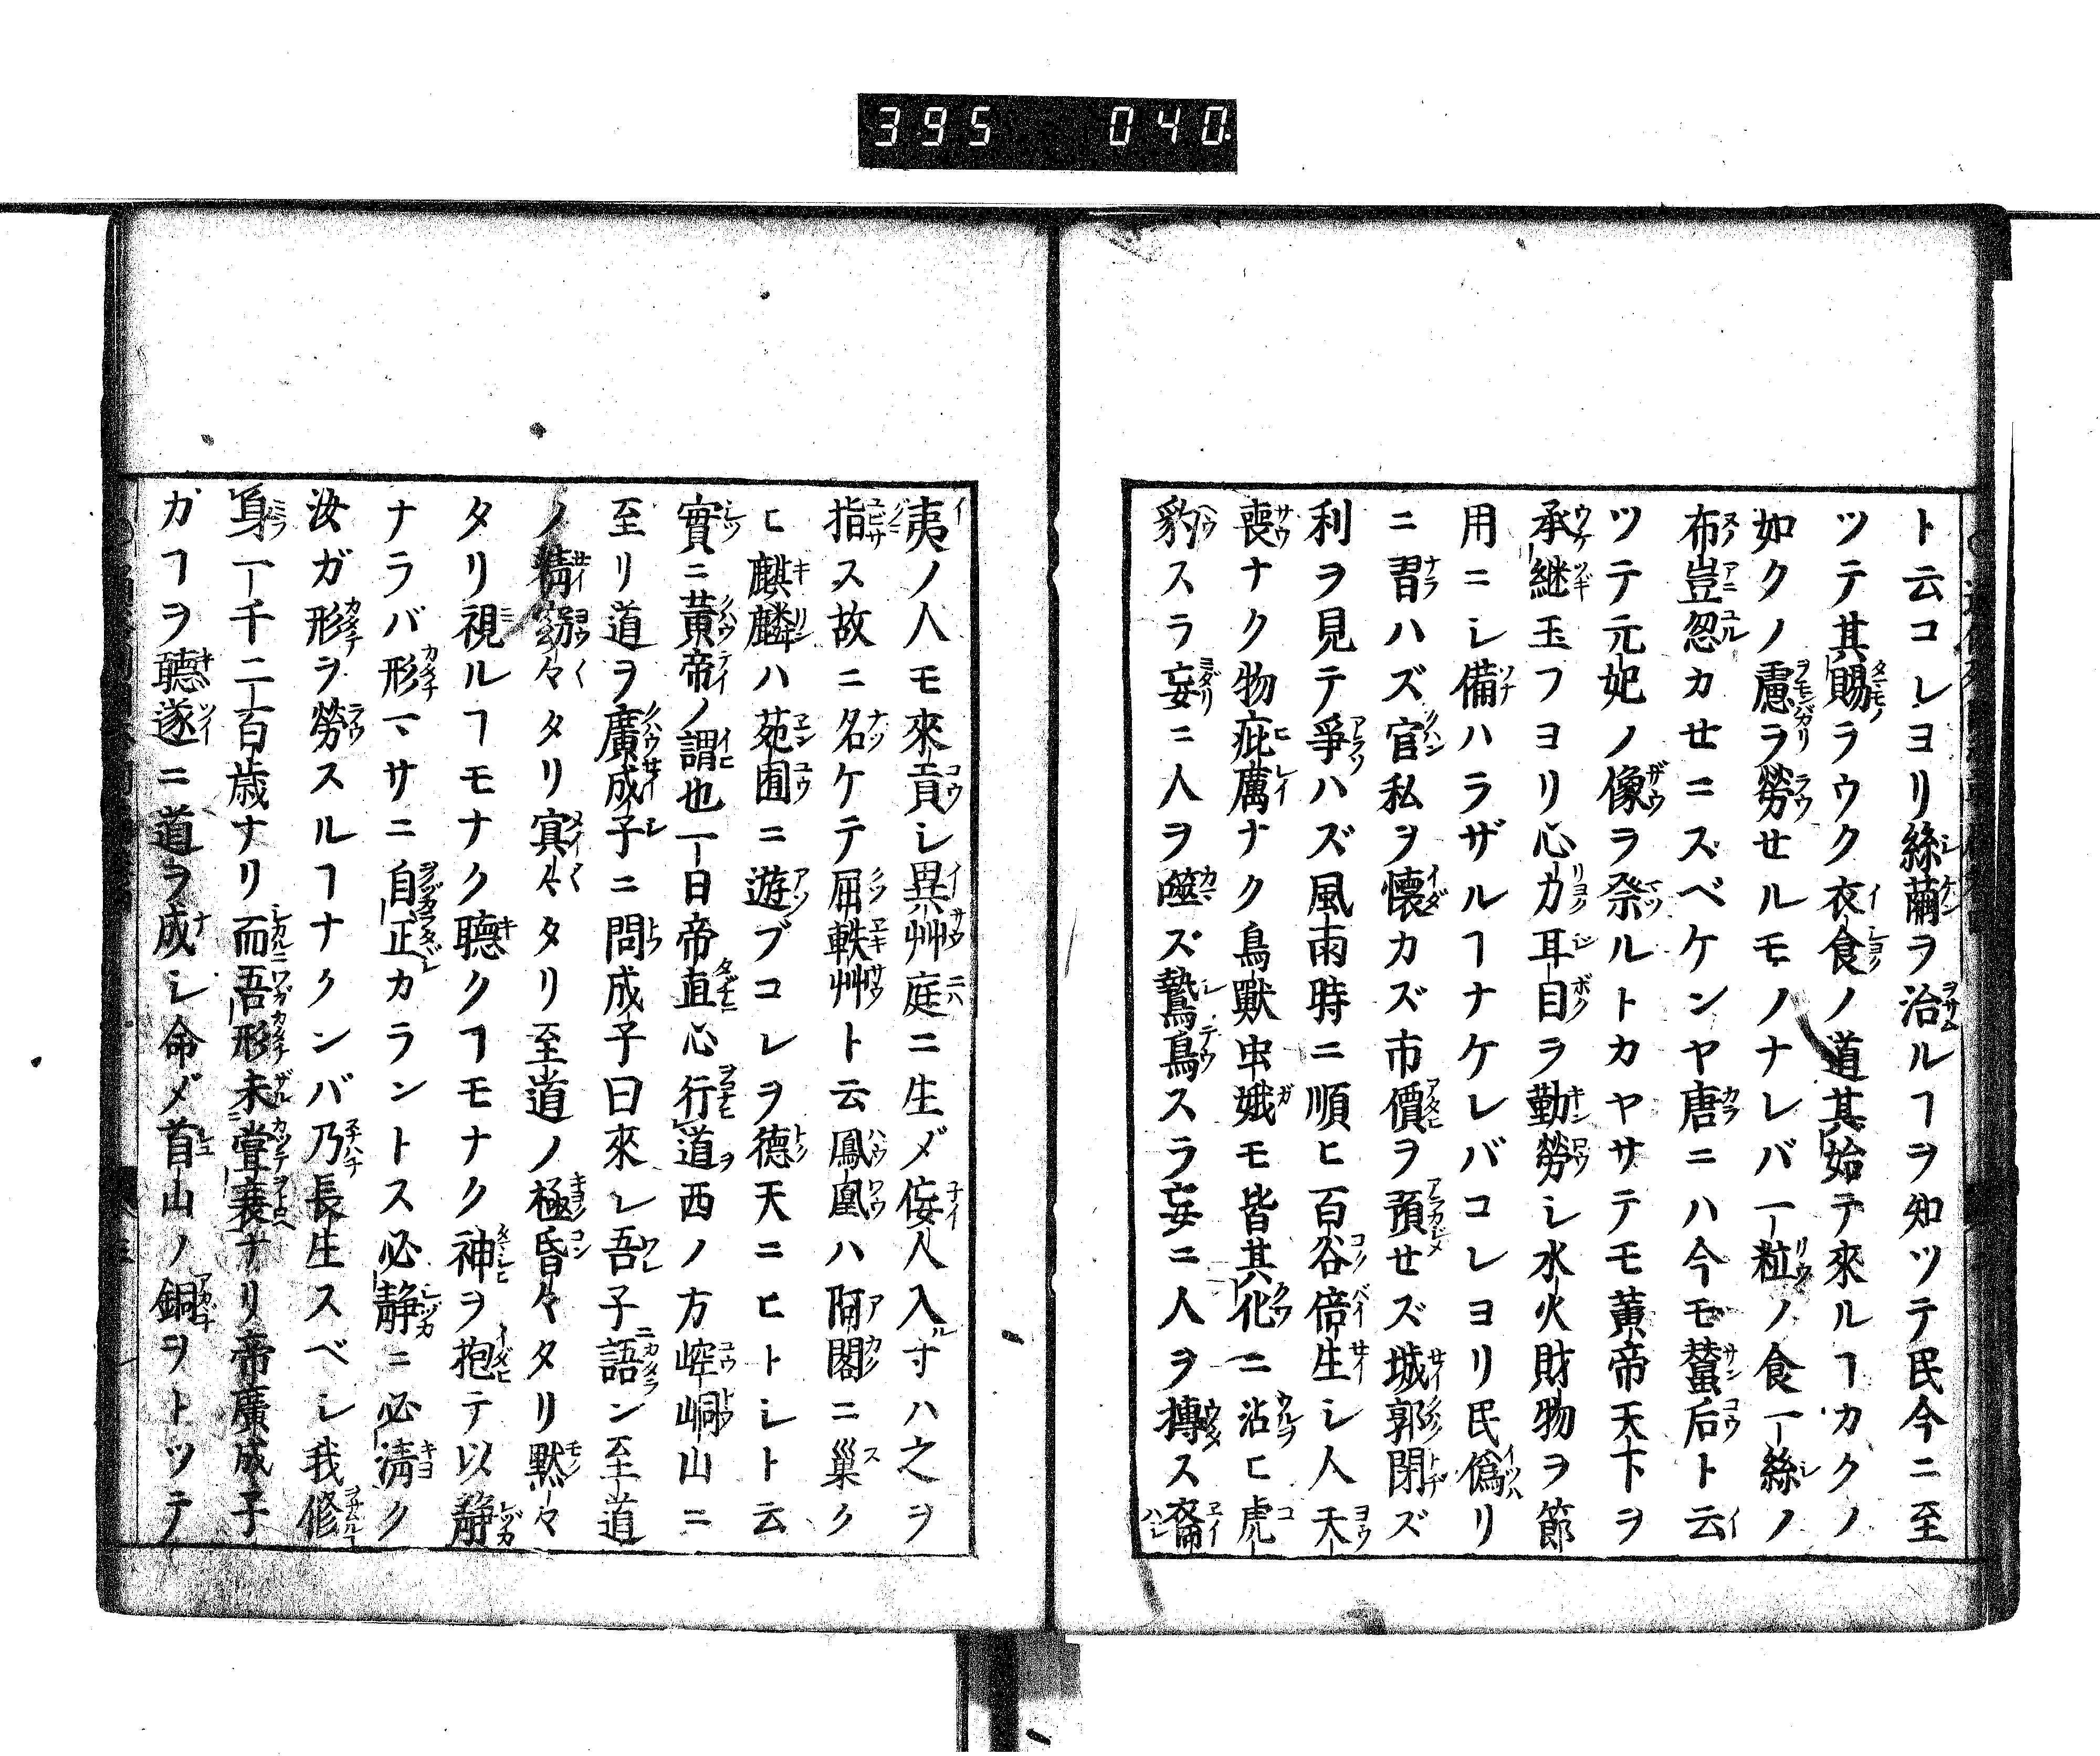 395 040
ト云コレヨリ絲繭ヲ治ルヿヲ知ツテ民今ニ至
ツテ其賜ラウク衣食ノ道其始テ來ルヿカクノ
如クノ慮ラ勞せルモノナレバ一粒ノ食一絲ノ
布豈忽カせニスベケンヤ唐ニハ今モ蠶后ト云
ツテ元妃ノ像ヲ祭ルトカヤサテモ黄帝天下ヲ
承継玉フヨリ心力耳目ラ勤勞シ水火財物ヲ節
用ニシ備ハラザルヿナケレバコレヨリ民僞リ
ニ習ハズ官私ヲ懐カズ市價ヲ預せズ城郭閉ズ
利ヲ見テ爭ハズ風雨時ニ順ヒ百谷倍生シ人夭
喪ナク物疵厲ナク鳥獸虫蛾モ皆其化ニ沾ヒ虎
豹スラ妄ニ人ヲ噬ズ鷙鳥スラ妄ニ人ヲ搏ス裔
夷ノ人モ來貢シ異艸庭ニ生ズ侫人入寸ハ之ヲ
指ス故ニ名ケテ屈軼艸ト云鳳凰ハ阿閣ニ巢ク
ヒ麒麟ハ苑囿ニ遊ブコレヲ德天ニヒトシト云
實ニ黄帝ノ謂也一日帝直心行道西ノ方崆峒山ニ
至リ道ヲ廣成子ニ問成子曰來レ吾子語ン至道
ノ精窈々タリ寘々タリ至道ノ極昏々タリ默々
タリ視ルヿモナク聽クヿモナク神ヲ抱テ以静
ナラバ形マサニ自正カラントス必静ニ必淸ク
汝ガ形ヲ勞スルヿナクンバ乃長生スベシ我修
身一千二百歳ナリ而吾形未甞衰ナリ帝廣成子
ガヿヲ聽遂ニ道ラ成シ命ズ首山ノ銅ヲトツテ